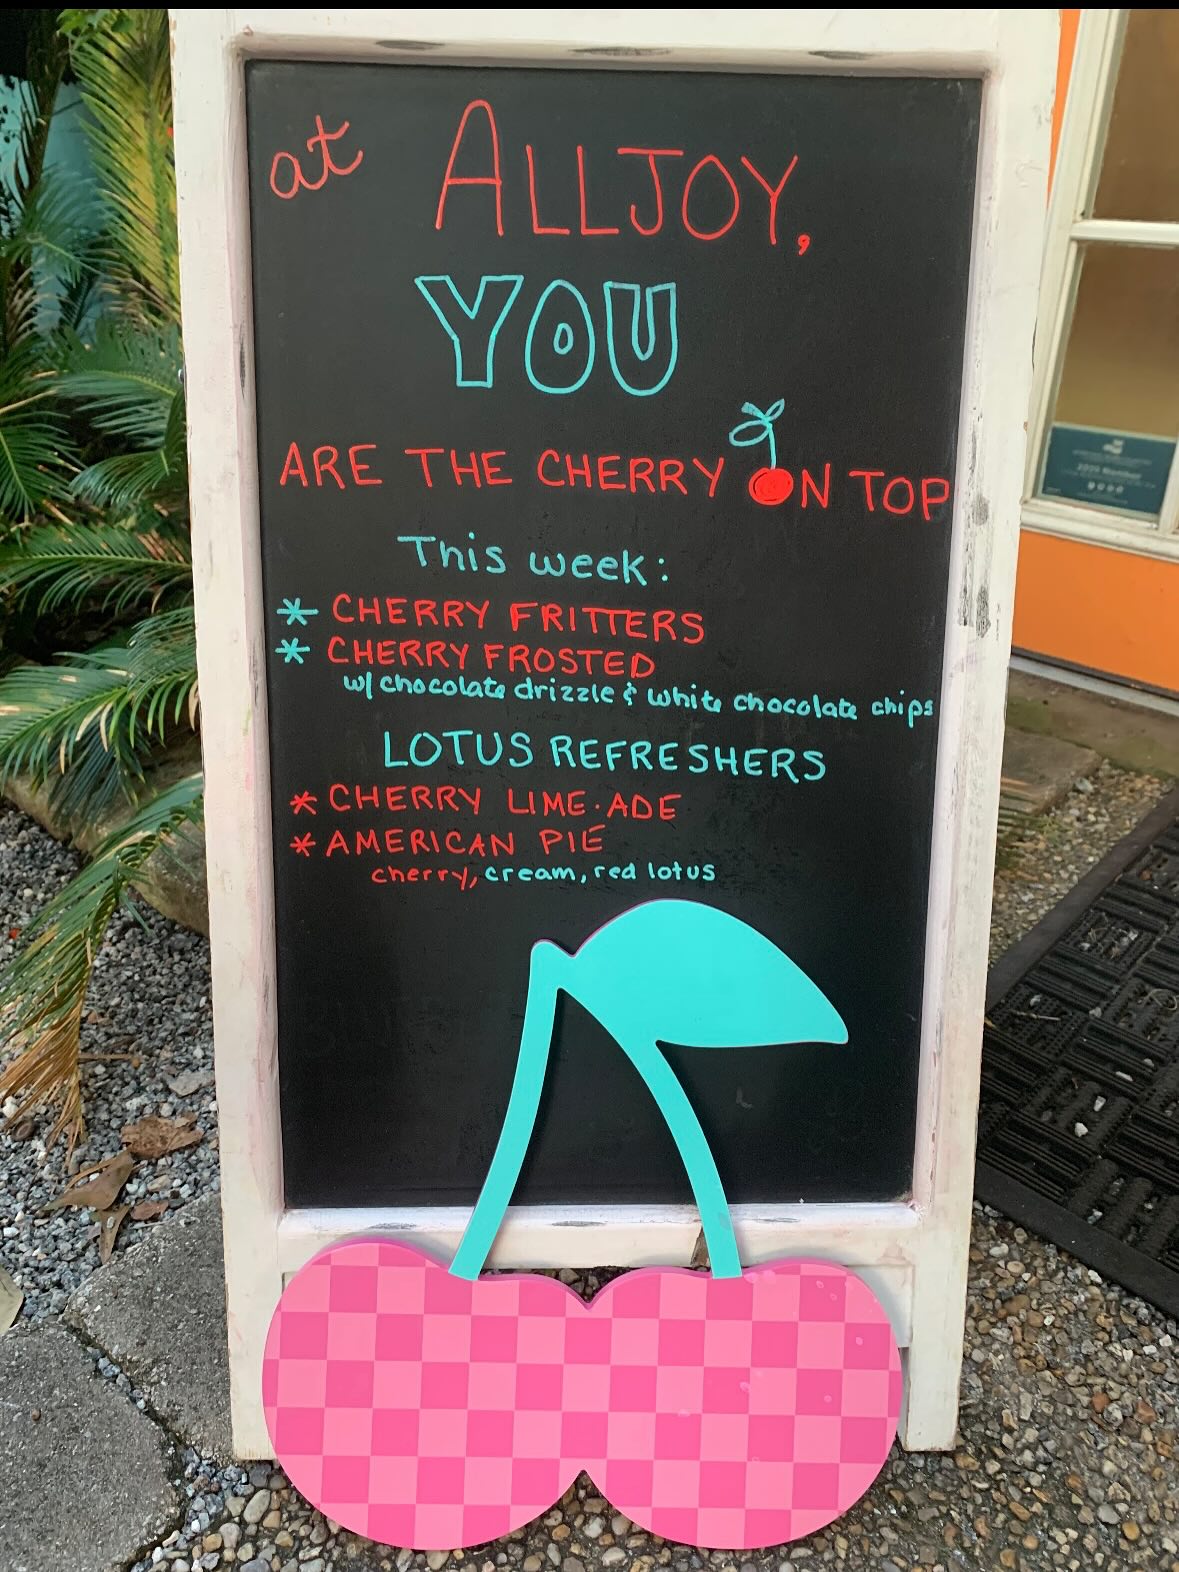 at ALLJOY,
YOU
ARE THE CHERRY ON TOP
This week:
* CHERRY FRITTERS
* CHERRY FROSTED
w/ chocolate drizzle & white chocolate chips
LOTUS REFRESHERS
* CHERRY LIME·ADE
* AMERICAN PIE
cherry, cream, red lotus